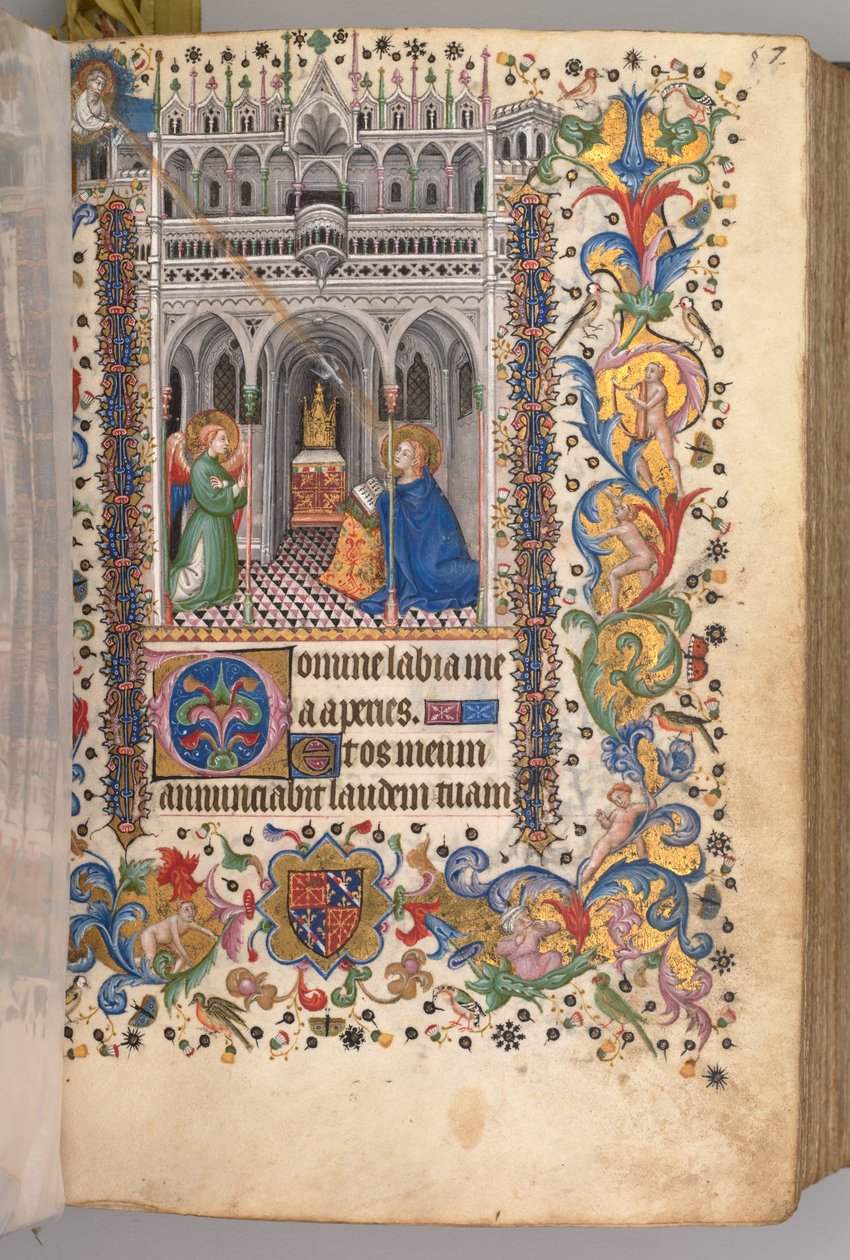 57.
Domine labia me
a aperies.
Et os meum
annunciabit laudem tuam